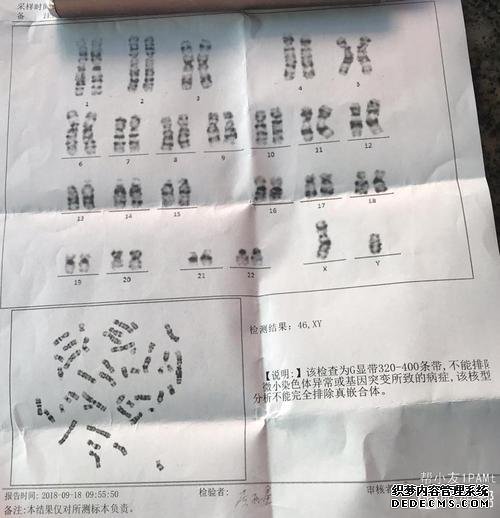 采样时间
备
1 2 3 4 5
6 7 8 9 10 11 12
13 14 15 16 17 18
19 20 21 22 X Y
检测结果: 46,XY
【说明:】该检查为G显带320-400条带,不能排除
微小染色体异常或基因突变所致的病症,该核型
分析不能完全排除真嵌合体。
报告时间: 2018-09-18 09:55:50
检验者:
审核者
备注:本结果仅对所测标本负责。
帮小友1PAMt
织梦内容管理系统
DEDECMS.COM